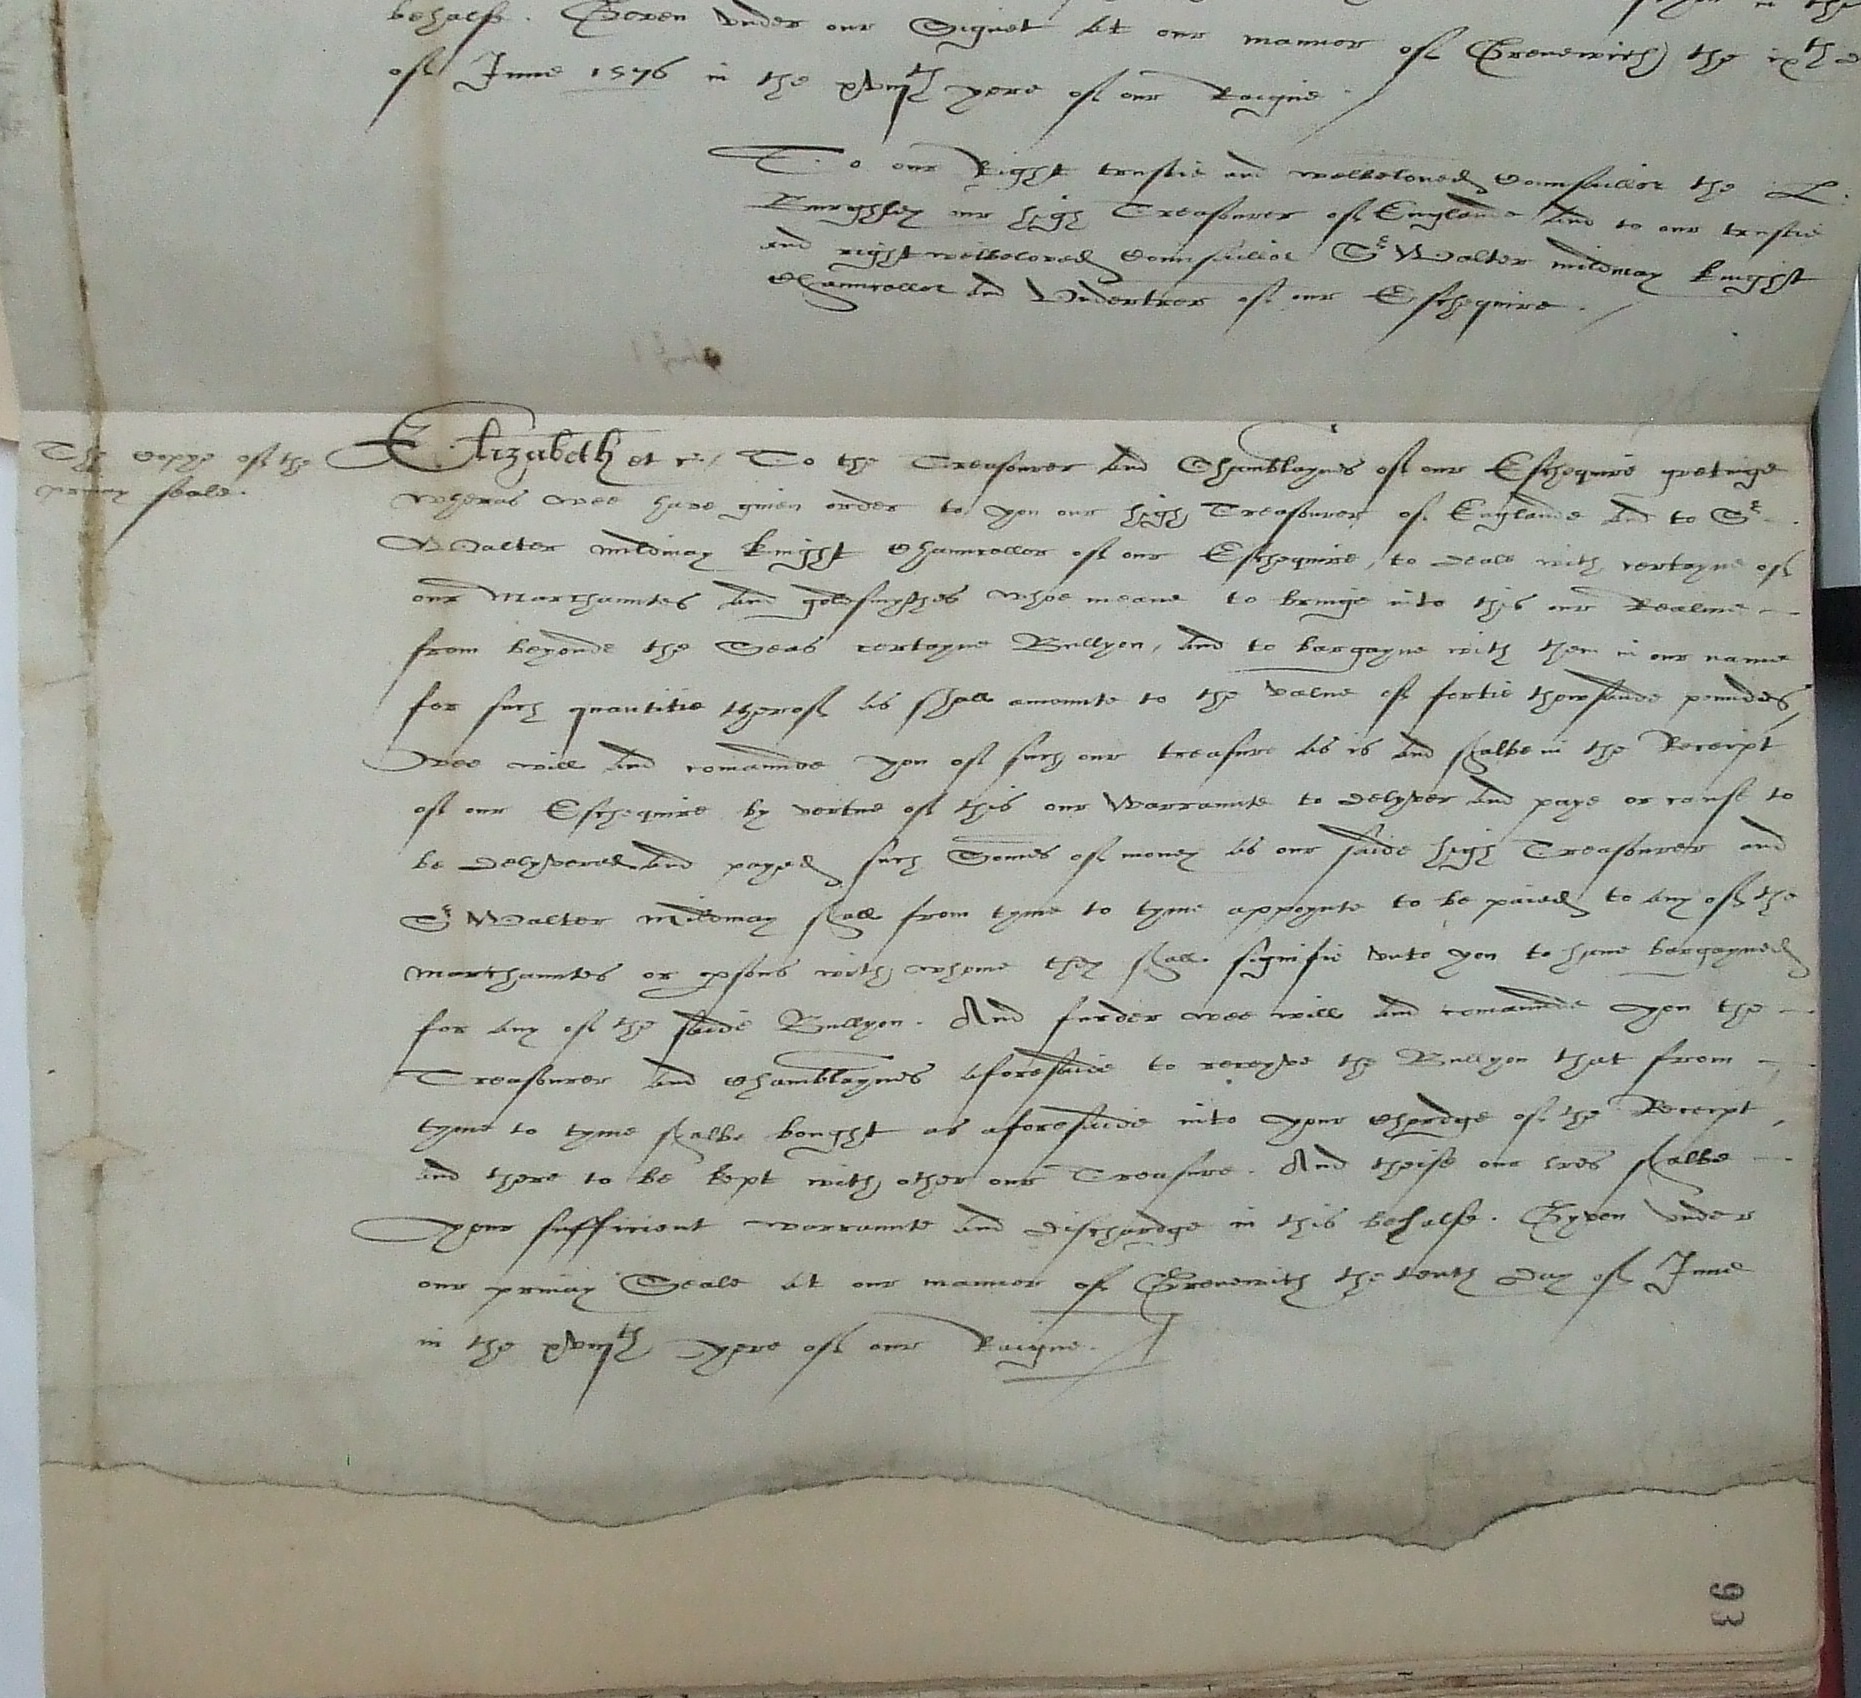 behalfe. Geven vnder our Signet at our mannor of Grenewich the ixth
of June 1576 in the xviijth yere of our Raigne.
To our Right trustie and welbeloued Counsaillor the L.
Burghley our high Treasourer of Englande And to our trustie
and right welbeloved Counsaillor Sr Walter mildmay knight
Chauncellor and Vndertrer of our Eschequire.
The Copye of the
privay seale.
Elizabeth et c. To the Treasourer And Chamblaynes of our Eschequire gretinge
wheras wee have given order to you our high Treasourer of Englande And to Sr
Walter mildmay knight Chauncellor of our Eschequire, to deale with certayne of
our Marchauntes And goldsmythes whoe meane to bringe into this our Realme
from beyonde the Seas certayne Bullyon, And to bargayne with them in our name
for such quantitie therof As shall amounte to the value of fortie thowsande poundes,
Wee will And comaunde you of such our treasure As is And shalbe in the Receipt
of our Eschequire by vertue of this our Warraunte to delyver And paye or cause to
be delyvered And payed such Somes of money As our saide high Treasourer and
Sr Walter Mildmay shall from tyme to tyme appoynte to be paied to Any of the
marchauntes or psons with whome they shall signifie vnto you to haue bargayned
for Any of the saide Bullyon. And furder wee will And comaunde you the
Treasourer And Chamblaynes Aforesaide to receyve the Bullyon that from
tyme to tyme shalbe bought as aforesaide into your Chardge of the Receipt,
And there to be kept with other our Treasure. And theise our lres shalbe
your sufficient warraunte And dischardge in this behalfe. Gyven vnder
our privay Seale At our mannor of Grenewich the tenth day of June
in the xviijth yere of our Raigne.
93